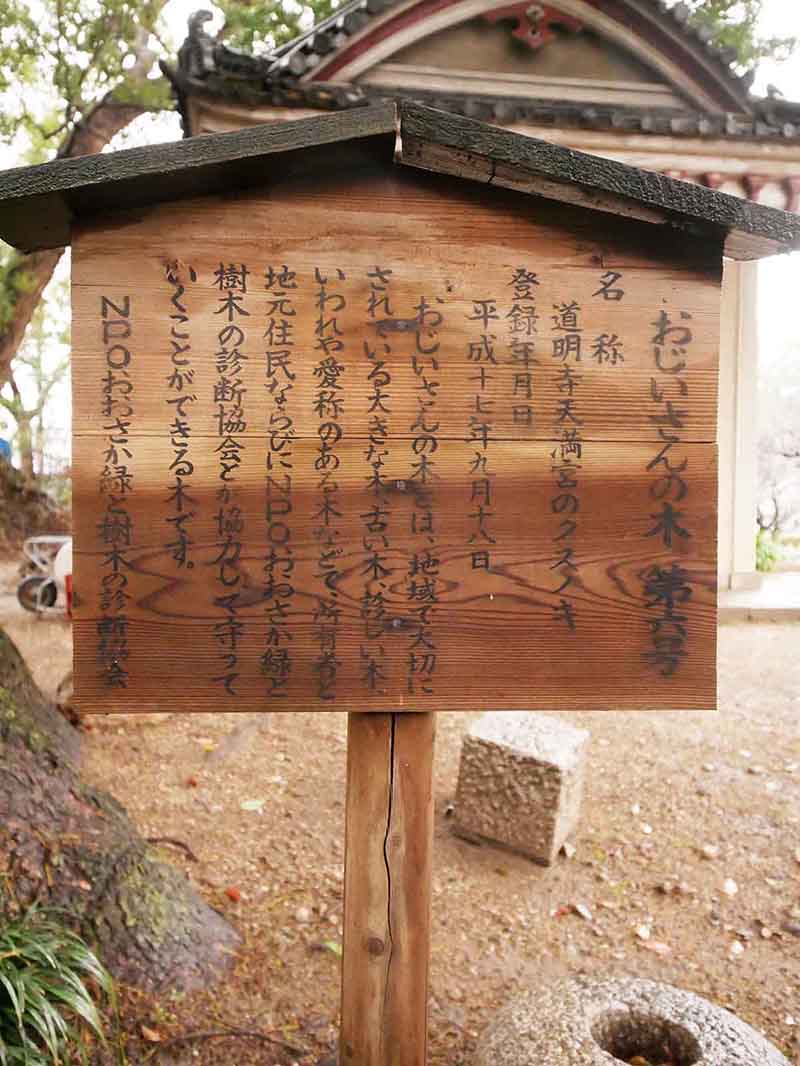 おじいさんの木 第六号
名称
道明寺天満宮のクスノキ
登録年月日
平成十七年九月十八日
おじいさんの木とは、地域で大切に
されている大きな木、古い木、珍しい木、
いわれや愛称のある木などで、所有者と
地元住民ならびにNPOおおさか緑と
樹木の診断協会とが協力して守って
いくことができる木です。
NPOおおさか緑と樹木の診断協会